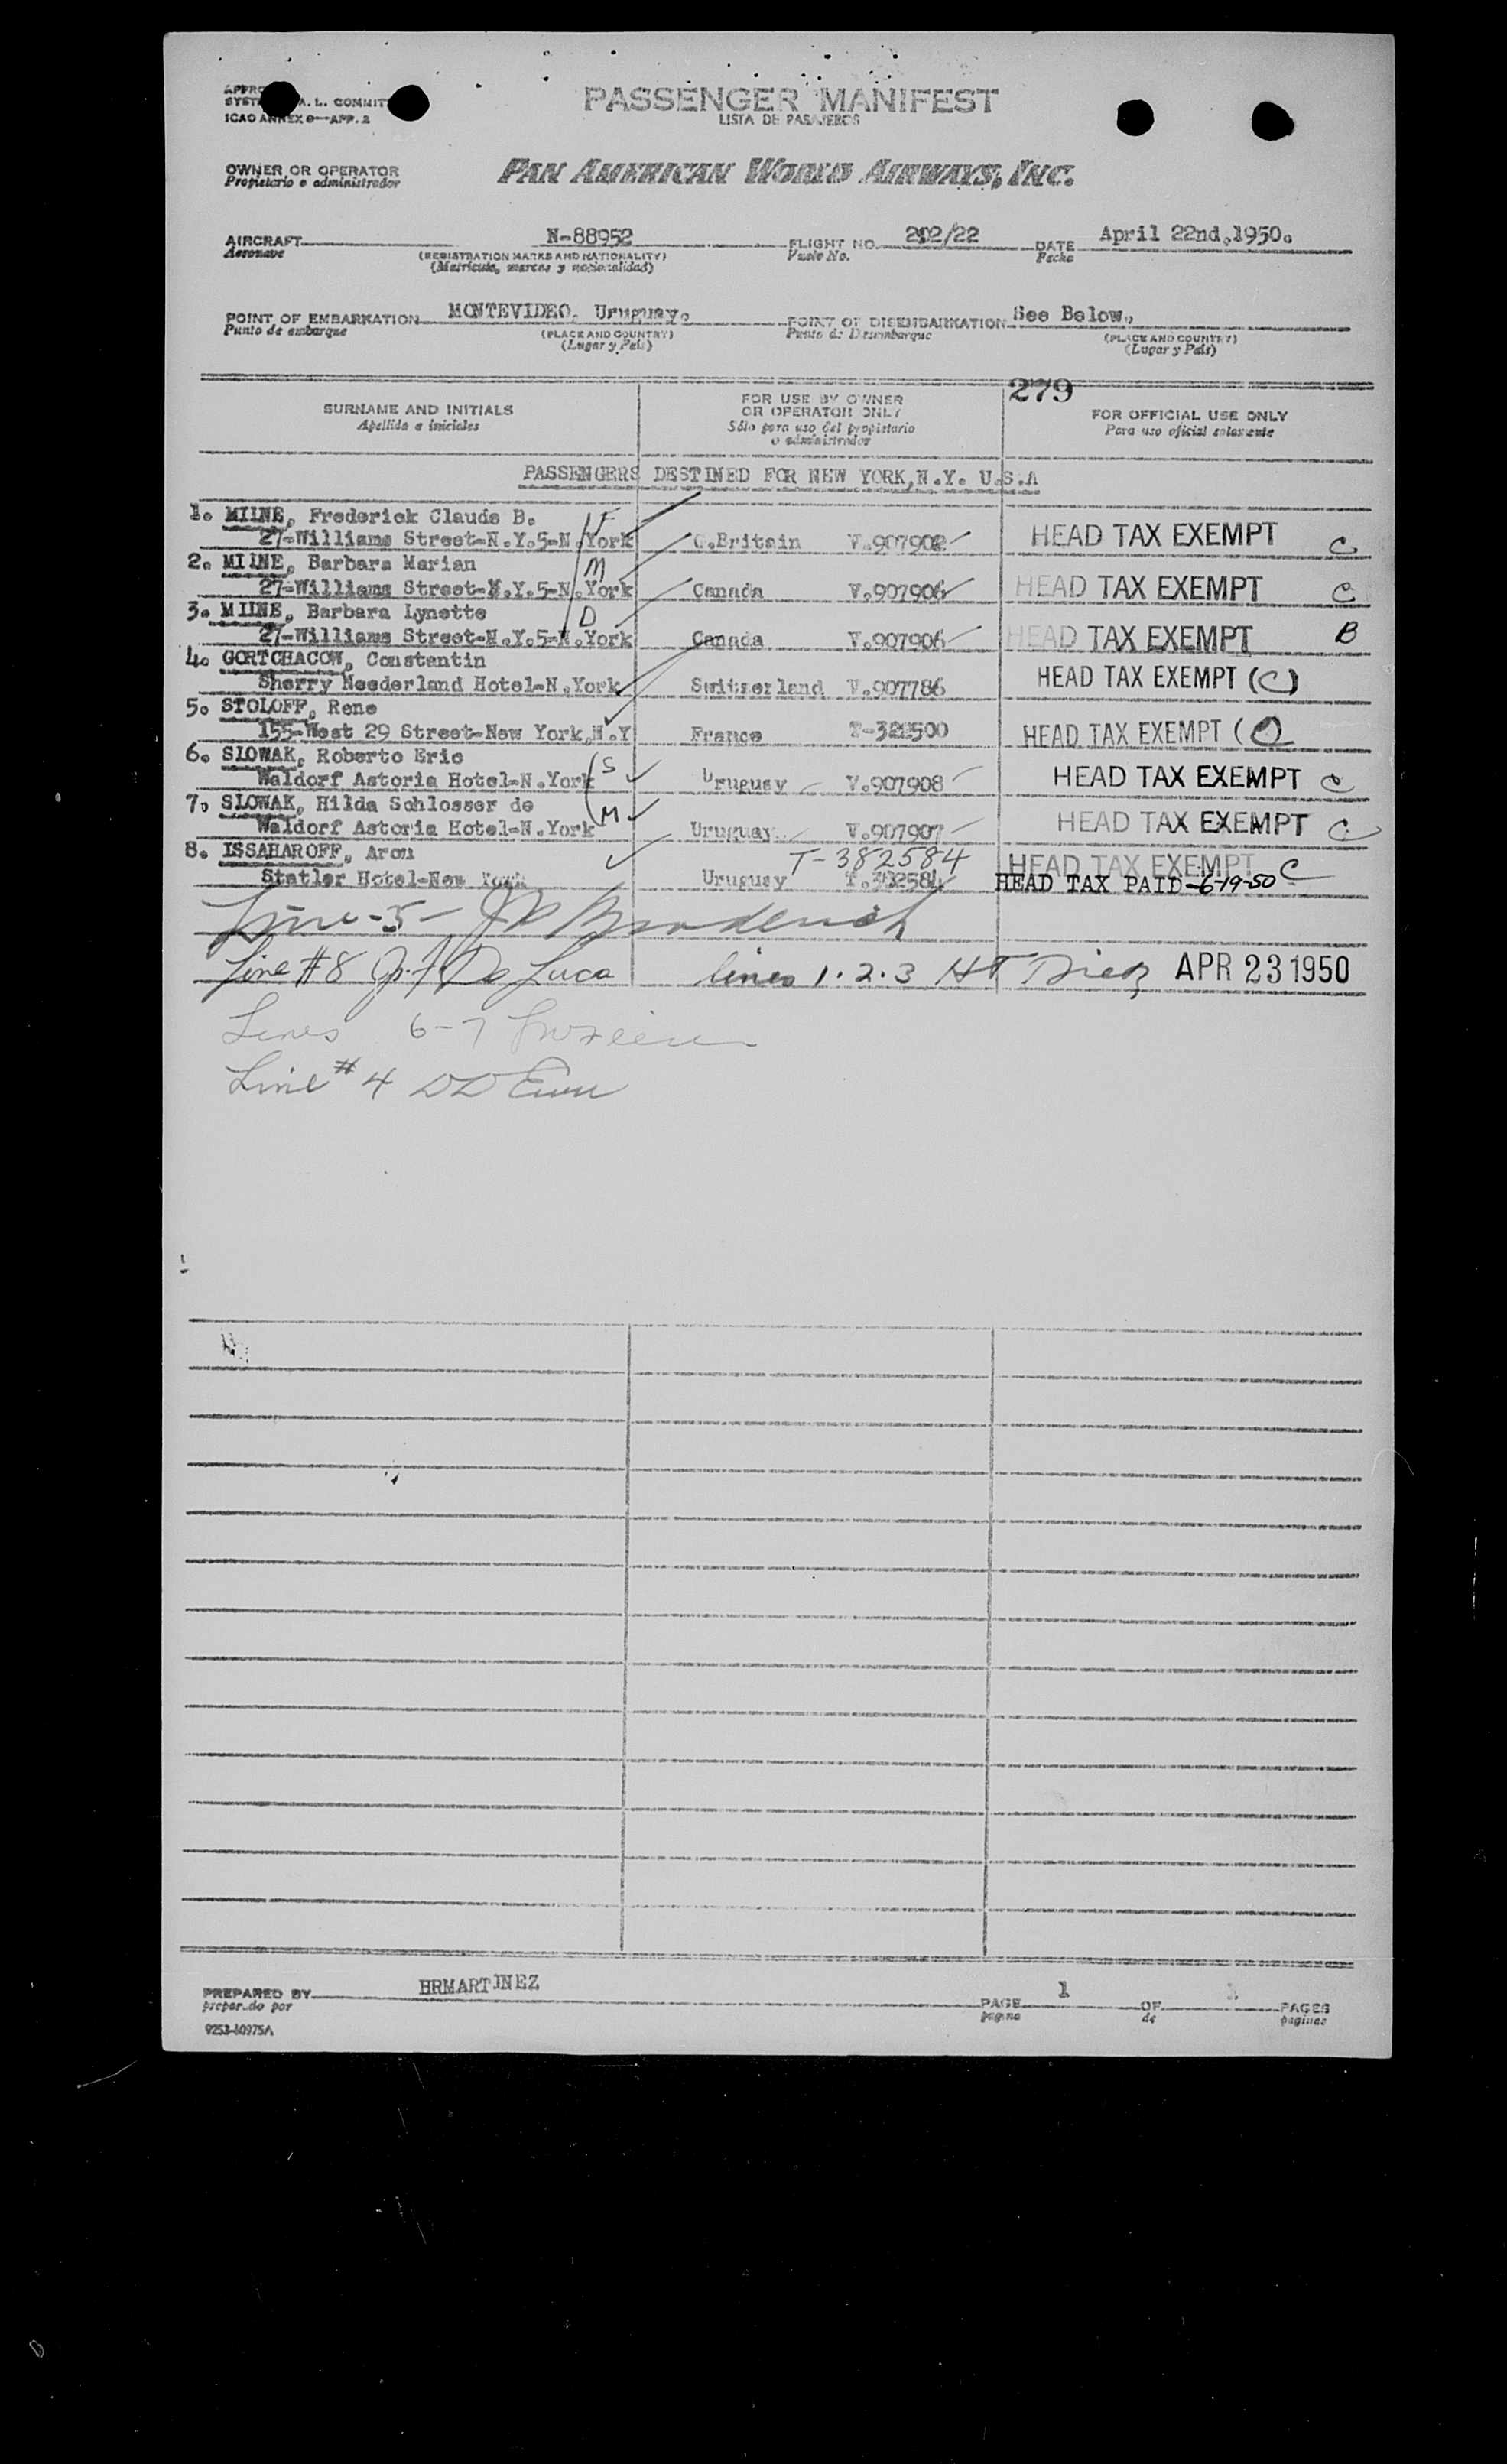 PASSENGER MANIFEST
LISTA DE PASAJEROS
A. L. COMMIT
ICAO ANNEX 9—APP. 2
OWNER OR OPERATOR
Propietario o administrador
PAN AMERICAN WORLD AIRWAYS, INC.
AIRCRAFT N-88952 FLIGHT NO. 202/22 DATE April 22nd,1950.
Aeronave (REGISTRATION MARKS AND NATIONALITY) Vuelo No. Fecha
(Matricula, marcas y nacionalidad)
POINT OF EMBARKATION MONTEVIDEO, Uruguay. POINT OF DISEMBARKATION See Below.
Punto de embarque (PLACE AND COUNTRY) Punto de Desembarque (PLACE AND COUNTRY)
(Lugar y Pais) (Lugar y Pais)
279
SURNAME AND INITIALS FOR USE BY OWNER OR OPERATOR ONLY FOR OFFICIAL USE ONLY
Apellido e iniciales Sólo para uso del propietario o administrador Para uso oficial solamente
PASSENGERS DESTINED FOR NEW YORK,N.Y. U.S.A
1. MILNE, Frederick Claude B.
27-Williams Street-N.Y.5-N.York G.Britain V.907902 HEAD TAX EXEMPT C
2. MILNE, Barbara Marian M
27-Williams Street-N.Y.5-N.York Canada V.907906 HEAD TAX EXEMPT C
3. MILNE, Barbara Lynette D
27-Williams Street-N.Y.5-N.York Canada V.907906 HEAD TAX EXEMPT B
4. GORTCHACOW, Constantin
Sherry Neederland Hotel-N.York Switzerland V.907786 HEAD TAX EXEMPT (C)
5. STOLOFF, Rene
155-West 29 Street-New York,N.Y France HEAD TAX EXEMPT (
6. SLOWAK, Roberto Eric S
Waldorf Astoria Hotel-N.York Uruguay V.907908 HEAD TAX EXEMPT C
7. SLOWAK, Hilda Schlosser de M
Waldorf Astoria Hotel-N.York Uruguay V.907907 HEAD TAX EXEMPT C
8. ISSAHAROFF, Aron T-382584 HEAD TAX EXEMPT C
Statler Hotel-New York Uruguay T.382584 HEAD TAX PAID-6-19-50
Line-5- J Broderick
Line #8 De Luca lines 1.2.3 APR 23 1950
Lines 6-7
Line #4 DD
PREPARED BY HRMARTINEZ PAGE 1 OF 1 PAGES
preparado por pagina de paginas
9253-40975A